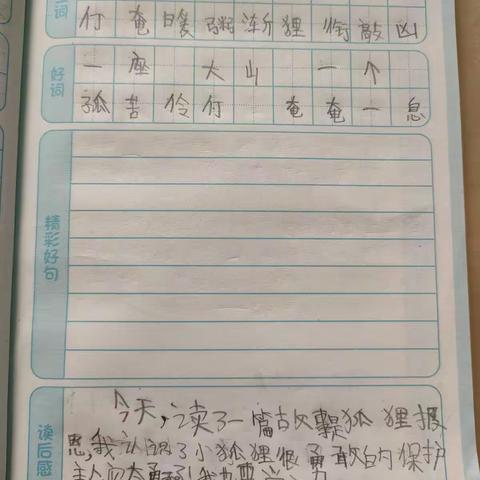 词
仃 奄 暖 粥 渐 狸 衔 敲 凶
好词
一 座 大 山 一 个
孤 苦 伶 仃 奄 奄 一 息
精彩好句
读后感
今天,读了一篇故事是狐狸报
恩,我认识了小狐狸很勇敢的保护